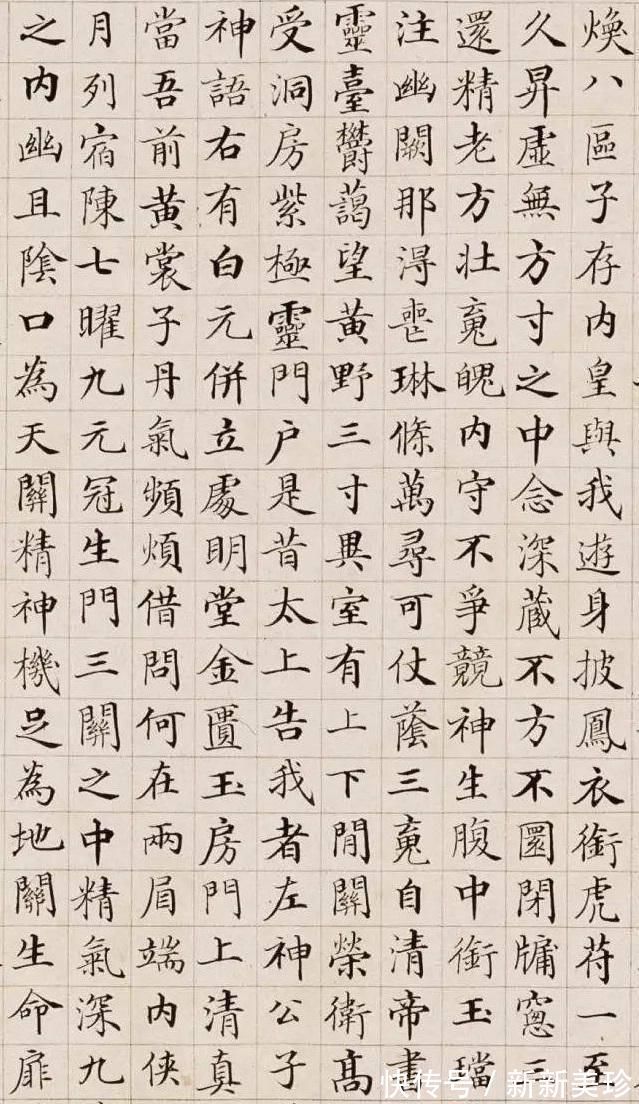 煥八區子存内皇與我遊身披鳳衣銜虎苻一至
久昇虛無方寸之中念深藏不方不圓閉牖窻三
還精老方壯䰟魄内守不爭競神生腹中銜玉璫
注幽闕那得喪琳條萬尋可仗蔭三䰟自清帝書
靈臺欝藹望黄野三寸異室有上下閒關榮衛髙
受洞房紫極靈門户是昔太上告我者左神公子
神語右有白元併立處明堂金匱玉房門上清真
當吾前黄裳子丹氣頻煩借問何在兩眉端内俠
月列宿陳七曜九元冠生門三關之中精氣深九
之内幽且陰口為天關精神機足為地關生命扉
快传号 / 新新美珍